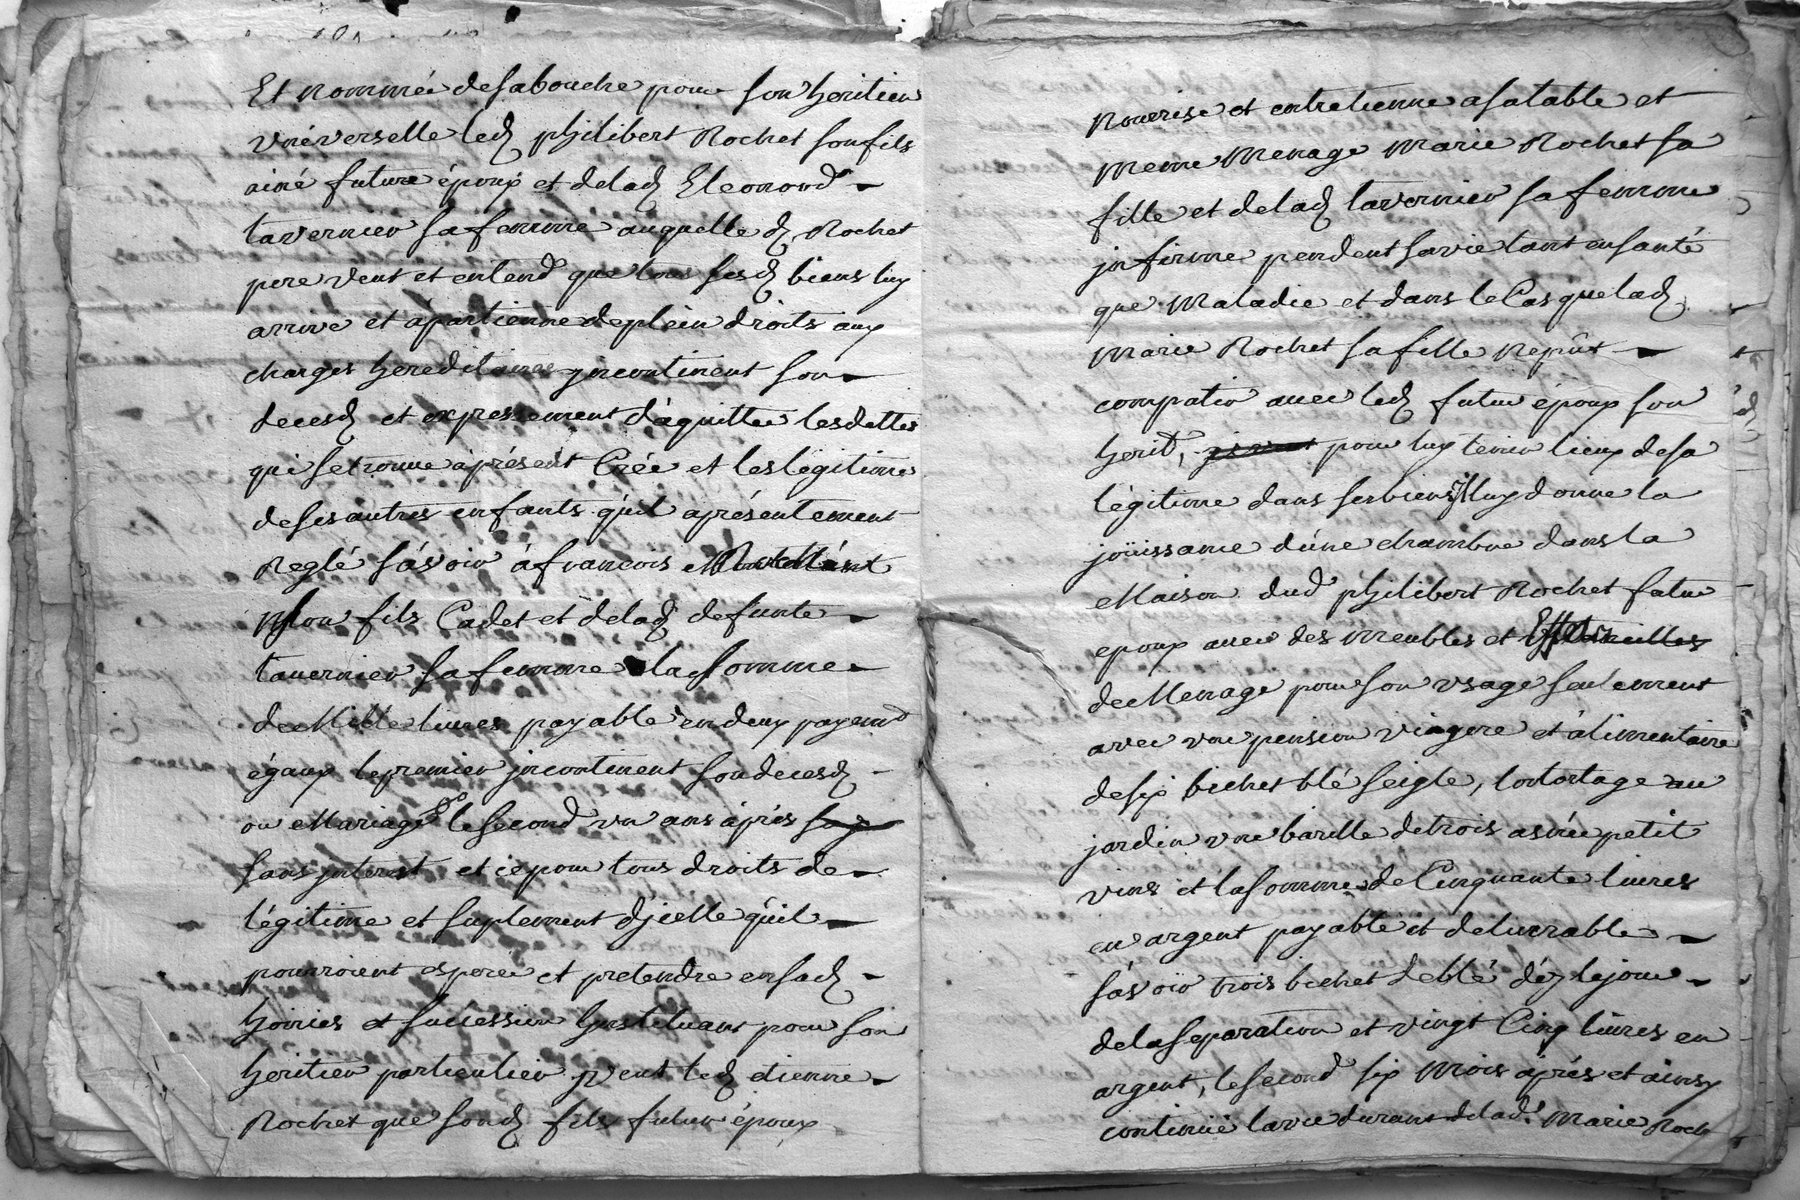 Et nommée desabouche pour son heritier
vniverselle led philibert Rochet sonfils
ainé future époux et delad Eleonord
tavernier sa femme auquelle d Rochet
pere veut et entend que tous sesd biens luy
arrive et apartienne deplein droits aux
charges hereditaires jncontinent son
decesd et expressement d'aquitter lesdettes
qui setrouve aprésent Créé et les légitimes
desesautres enfants qu'il aprésentement
Reglé sásvoir á francois
son fils Cadet et delad defunte
tavernier sa femme lad somme
de Mille livres payable en deux payemt
égaux lepremier jncontinent sondecesd
ou Mariage le second vn ans aprés
sans jnterest et ce pour tous droits de
légitime et suplement d'jcelle qu'il
pourroient esperer et pretendre ensad
hoiries et succession Jnstituant pour son
heritier particulier led etienne
Rochet que sond fils futur époux
Nourrise et entretienne asatable et
meme Menage Marie Rochet sa
fille et delad tavernier sa femme
jnfirme pendent savie tant ensanté
que Maladie et dans le Cas que lad
Marie Rochet sa fille Nepût
compatir avec led futur époux son
herit, pour luy tenir lieux desa
légitime dans sesbiens Jl luy donne la
joüissance d'úne chambre dans la
Maison dud philibert Rochet futur
epoux avec des meubles et Effets
de Menage pour son vsage seulement
avec vne pension viagere et álimentaire
desix bichet blé seigle, lortortage au
jardin vne barille detrois asnée petit
vins et lasomme de Cinquante livres
en argent payable et delivrable
sásvoir trois bichet deblé déz lejour
delaseparation et vingt Cinq livres en
argent, lesecond six Mois aprés et ainsy
continüé lavie durant delad. Marie Roch